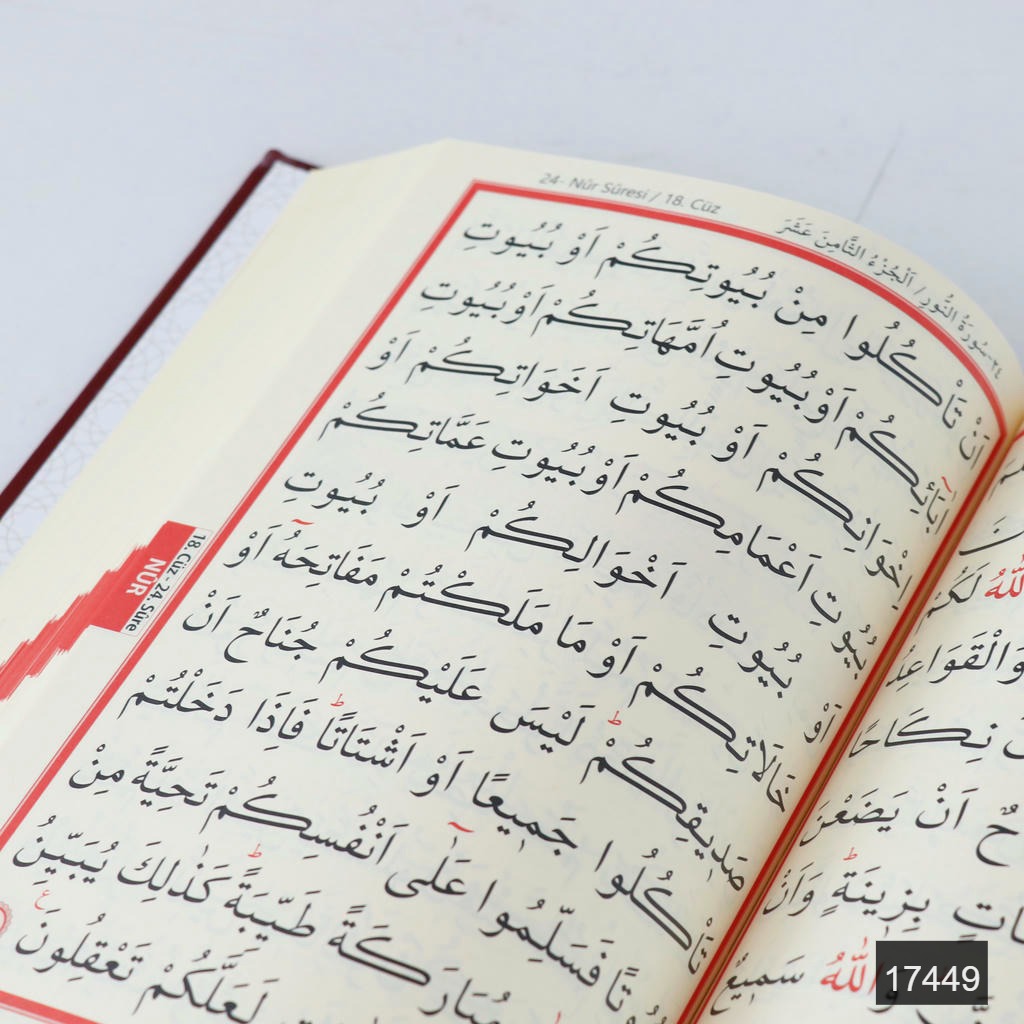 24- Nûr Sûresi / 18. Cüz
٢٤-سُورَةُ النُّورِ / اَلْجُزْءُ الثَّامِنَ عَشَرَ
اَنْ تَأْكُلُوا مِنْ بُيُوتِكُمْ اَوْ بُيُوتِ
اٰبَٓائِكُمْ اَوْ بُيُوتِ اُمَّهَاتِكُمْ اَوْ بُيُوتِ
اِخْوَانِكُمْ اَوْ بُيُوتِ اَخَوَاتِكُمْ اَوْ
بُيُوتِ اَعْمَامِكُمْ اَوْ بُيُوتِ عَمَّاتِكُمْ
اَوْ بُيُوتِ اَخْوَالِكُمْ اَوْ بُيُوتِ
خَالَاتِكُمْ اَوْ مَا مَلَكْتُمْ مَفَاتِحَهُٓ اَوْ
صَدٖيقِكُمْؕ لَيْسَ عَلَيْكُمْ جُنَاحٌ اَنْ
تَأْكُلُوا جَمٖيعًا اَوْ اَشْتَاتًاؕ فَاِذَا دَخَلْتُمْ
فَسَلِّمُوا عَلٰٓى اَنْفُسِكُمْ تَحِيَّةً مِنْ
مُبَارَكَةً طَيِّبَةًؕ كَذٰلِكَ يُبَيِّنُ
لَعَلَّكُمْ تَعْقِلُونَ ع
18.Cüz - 24.Sûre
NÛR
لَكُمْ
وَالْقَوَاعِدُ
نِكَاحًا
اَنْ يَضَعْنَ
بِزٖينَةٍؕ وَاَنْ
وَاللّٰهُ سَمٖيعٌ
17449